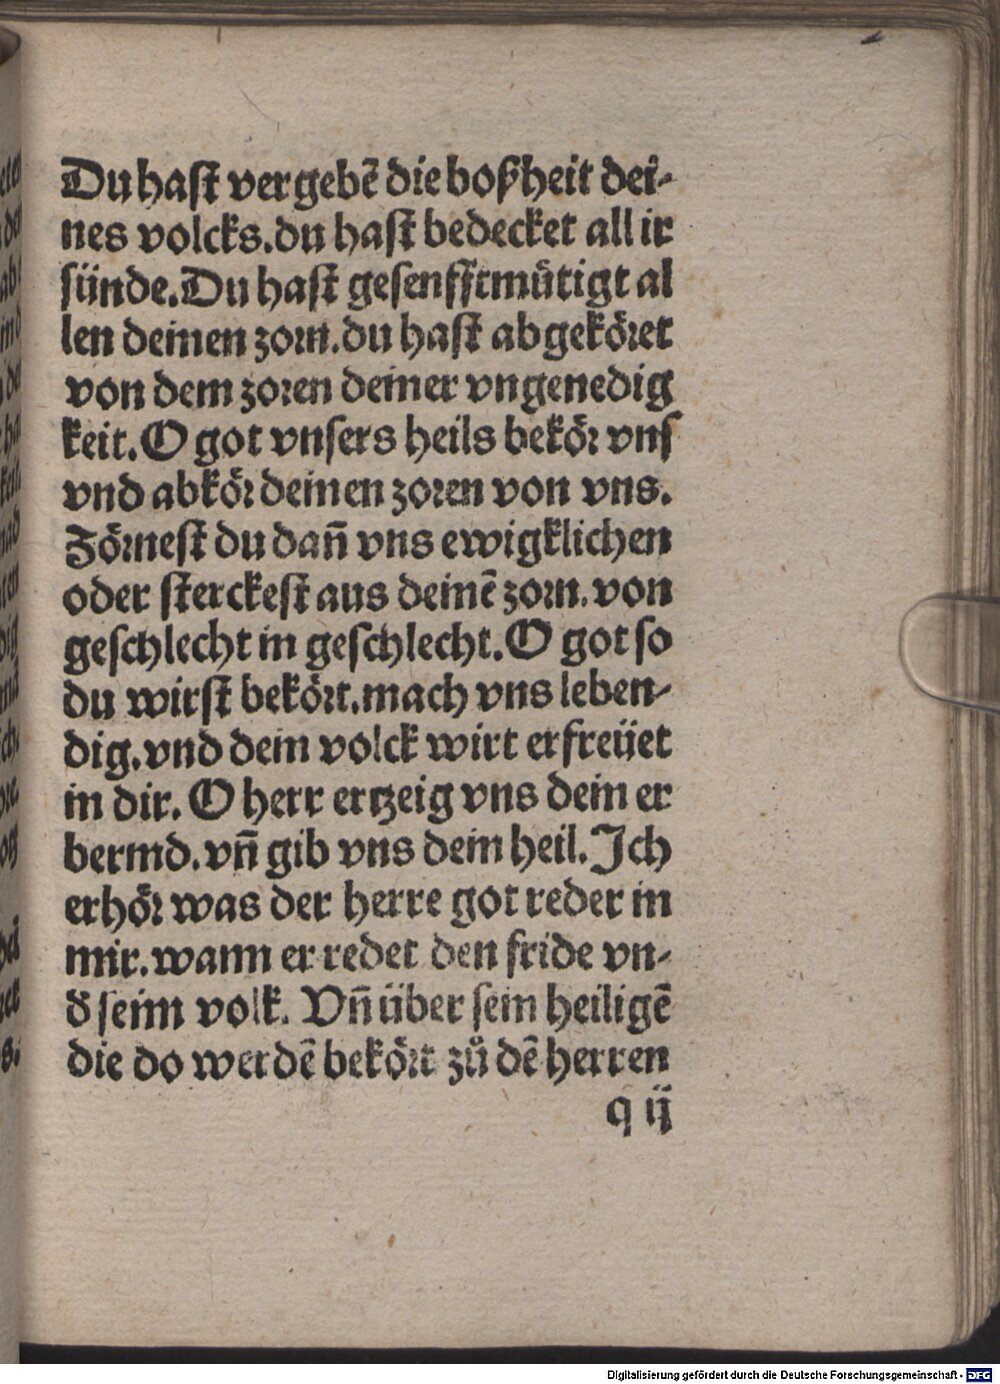 Du haſt vergebẽ die boßheit dei-
nes volcks.du haſt bedecket all ir
ſünde.Du haſt geſenfftmütigt al
len deinen zorn.du haſt abgeköret
von dem zoren deiner vngenedig
keit.O got vnſers heils bekör vnſ
vnd abkör deinen zoren von vns.
Zörneſt du dañ vns ewigklichen
oder ſterckeſt aus deinẽ zorn.von
geſchlecht in geſchlecht.O got ſo
du wirſt bekört.mach vns leben-
dig.vnd dein volck wirt erfreüet
in dir. O herr ertzeig vns dein er
bermd.vñ gib vns dein heil.Ich
erhör was der herre got redet in
mir.wann er redet den fride vn-
d ſeim volk. Vñ über ſein heiligẽ
die do werdẽ bekört zů dẽ herren
q ij
Digitalisierung gefördert durch die Deutsche Forschungsgemeinschaft - DFG